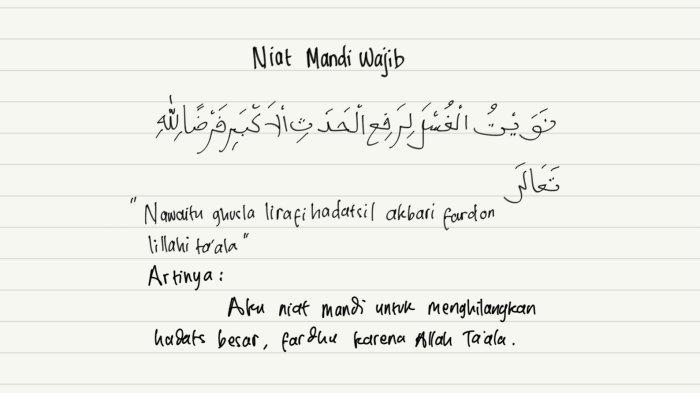 Niat Mandi Wajib
نَوَيْتُ الْغُسْلَ لِرَفْعِ الْحَدَثِ اْلاَكْبَرِ فَرْضًا لِلّٰهِ
تَعَالَى
"Nawaitu ghusla lirafi hadatsil akbari fardon
lillahi ta'ala"
Artinya :
Aku niat mandi untuk menghilangkan
hadats besar, fardhu karena Allah Ta'ala.